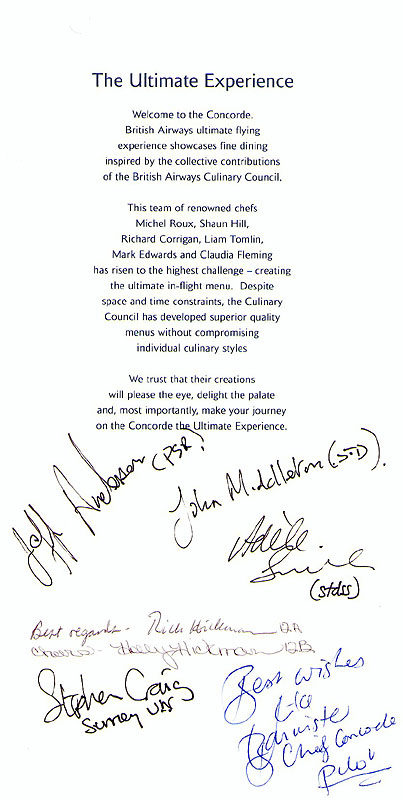 The Ultimate Experience
Welcome to the Concorde.
British Airways ultimate flying
experience showcases fine dining
inspired by the collective contributions
of the British Airways Culinary Council.
This team of renowned chefs
Michel Roux, Shaun Hill,
Richard Corrigan, Liam Tomlin,
Mark Edwards and Claudia Fleming
has risen to the highest challenge – creating
the ultimate in-flight menu. Despite
space and time constraints, the Culinary
Council has developed superior quality
menus without compromising
individual culinary styles
We trust that their creations
will please the eye, delight the palate
and, most importantly, make your journey
on the Concorde the Ultimate Experience.
Jeff (PSR).
John Middleton (STD).
Adèle
(stdss)
Best regards - Rick Hickman 12A
Cheers - Holly Hickman 12B
Stephen Craig
Surrey UK
Best wishes
Bannister
Chief Concorde
Pilot